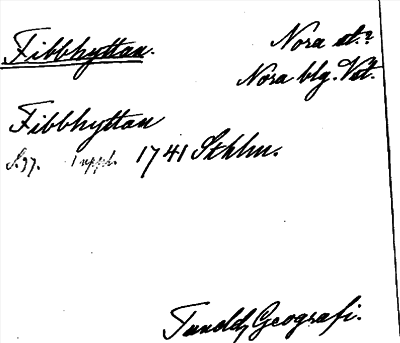 Fibbhyttan. Nora st.?
Nora blg. Vstl.
Fibbhyttan
S.97. 1 uppl. 1741 Sthlm.
Tuneld, Geografi.